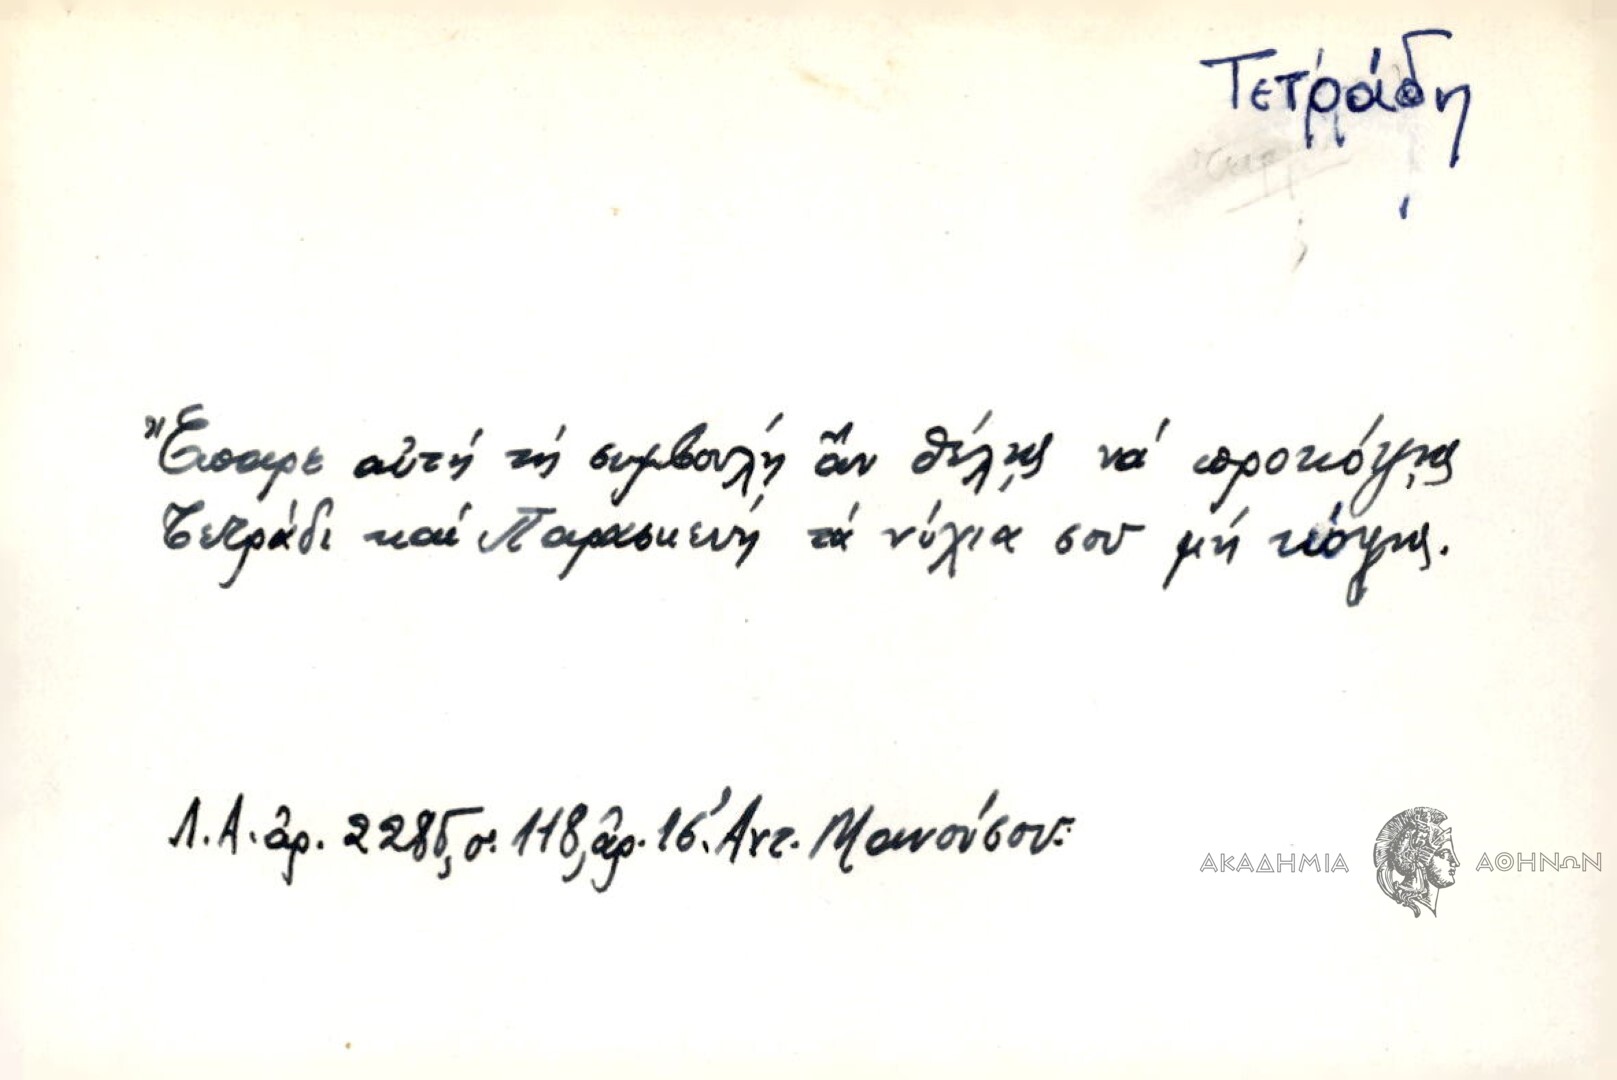 Τετράδη
Ἔπαρε αὐτή τή συμβουλή ἄν θέλῃς νά προκόψῃς
Τετράδι καί Παρασκευή τά νύχια σου μή κόψῃς.
Λ.Α. ἀρ. 2285, σ. 118, ἀρ. 16. Ἀντ. Μανούσου.
ΑΚΑΔΗΜΙΑ ΑΘΗΝΩΝ